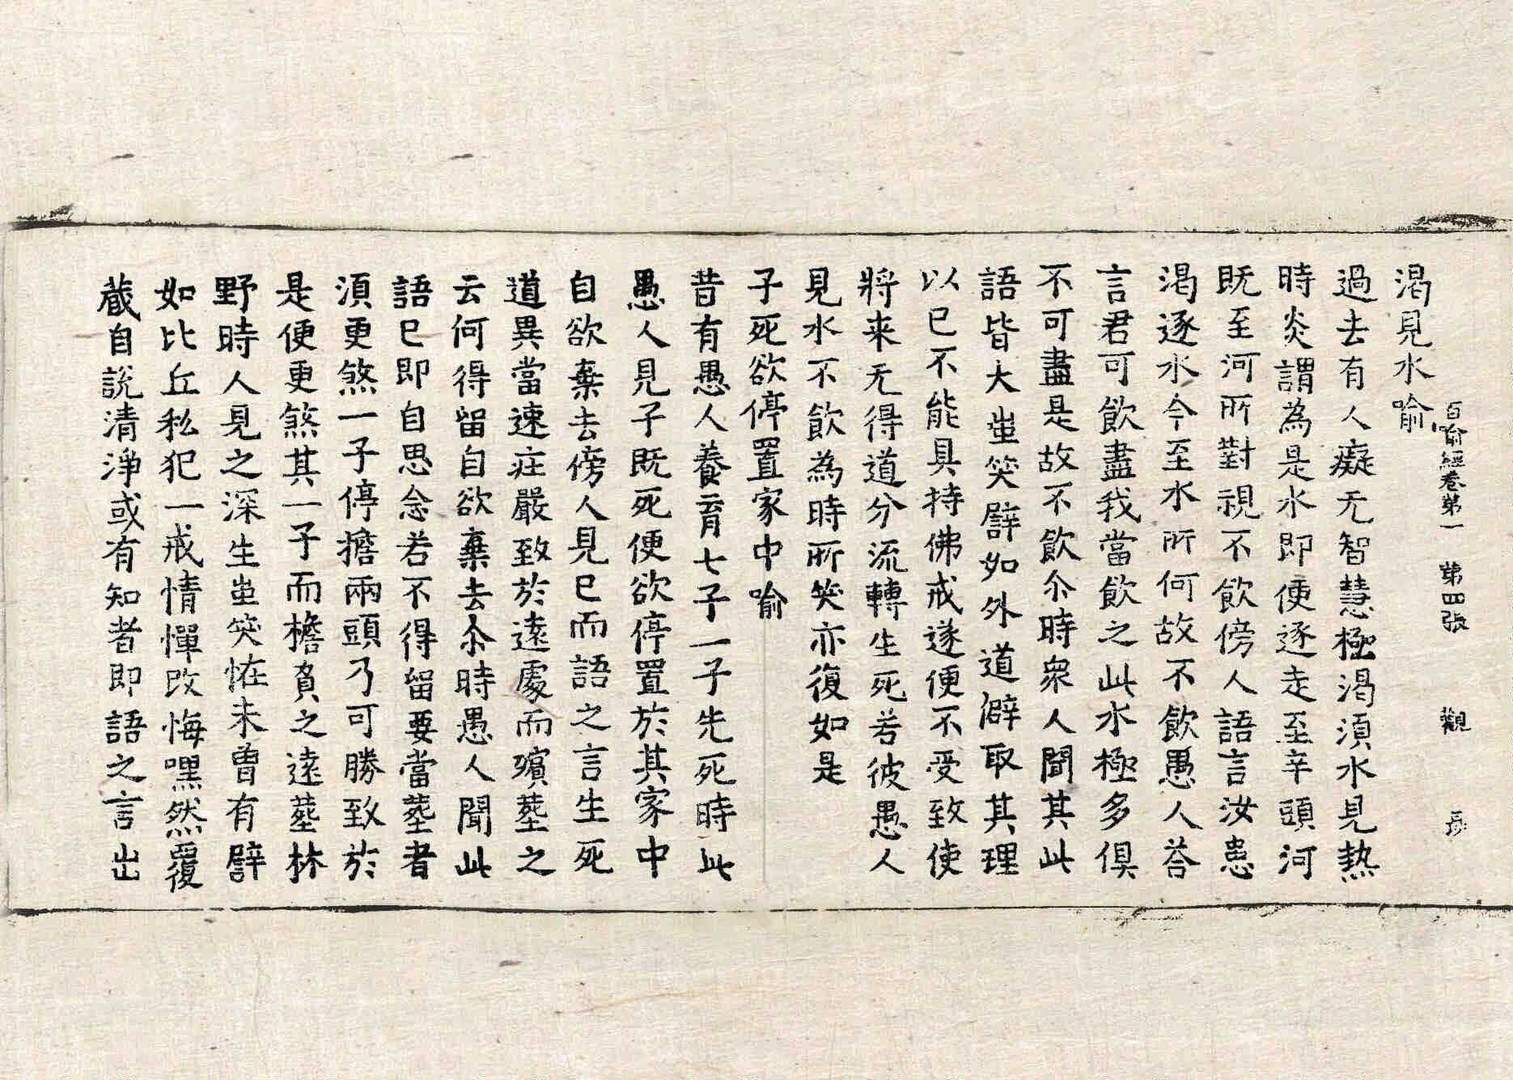 百喻經卷第一 第四張 觀
渴見水喻
過去有人癡无智慧極渴湏水見熱
時炎謂為是水即便逐走至辛頭河
既至河所對視不飲傍人語言汝患
渴逐水今至水所何故不飲愚人荅
言君可飲盡我當飲之此水極多俱
不可盡是故不飲尒時衆人聞其此
語皆大蚩笑譬如外道僻取其理
以已不能具持佛戒遂便不受致使
將来无得道分流轉生死若彼愚人
見水不飲為時所笑亦復如是
子死欲停置家中喻
昔有愚人養育七子一子先死時此
愚人見子既死便欲停置於其家中
自欲棄去傍人見已而語之言生死
道異當速庄嚴致於遠處而殯葬之
云何得留自欲棄去尒時愚人聞此
語已即自思念若不得留要當葬者
湏更煞一子停擔兩頭乃可勝致於
是便更煞其一子而檐負之遠葬林
野時人見之深生蚩笑恠未曾有譬
如比丘私犯一戒情憚改悔嘿然覆
蔵自說清淨或有知者即語之言出